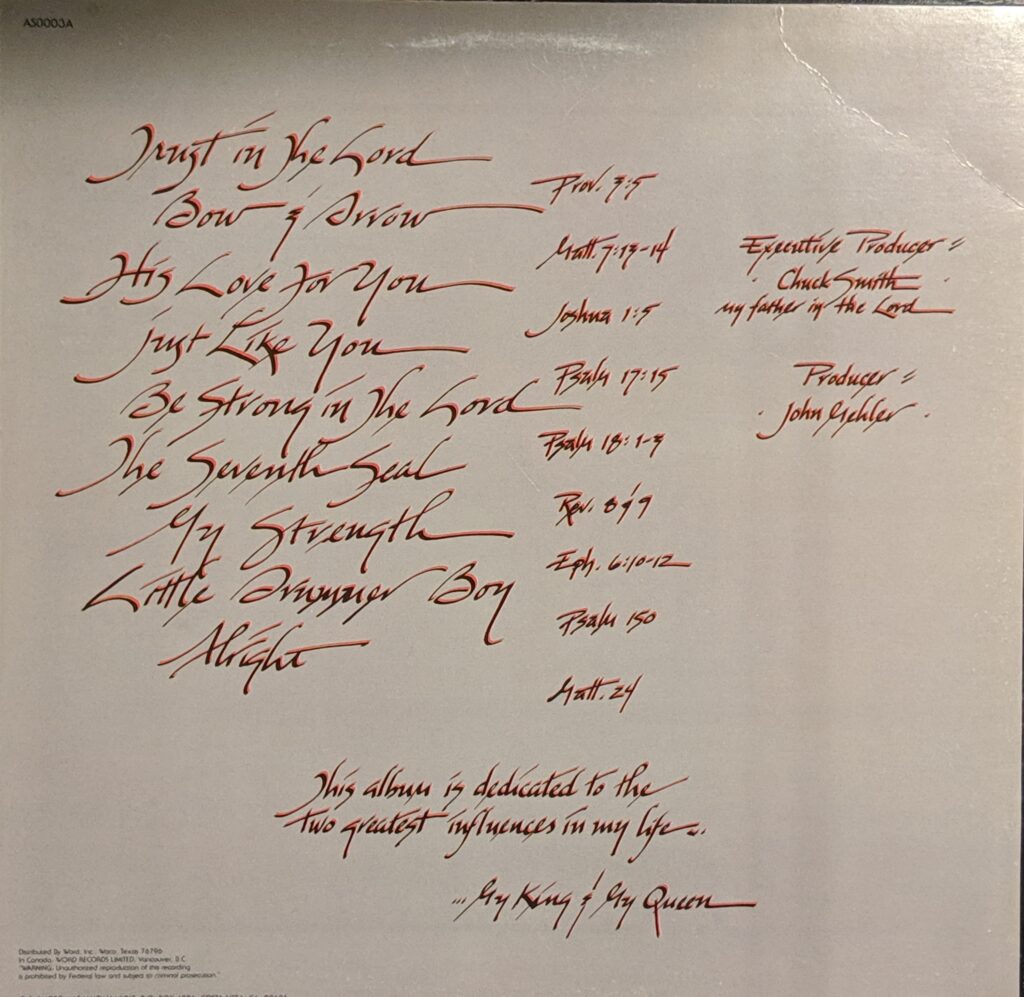 AS0003A
Trust in The Lord
Prov. 3:5
Bow & Arrow
Matt. 7:13-14
His Love For You
Joshua 1:5
Just Like You
Psalm 17:15
Be Strong in The Lord
Psalm 18:1-3
The Seventh Seal
Rev. 8 & 9
My Strength
Eph. 6:10-12
Little Drummer Boy
Psalm 150
Alright
Matt. 24
Executive Producer =
· Chuck Smith ·
my father in the Lord
Producer =
· John Mehler ·
This album is dedicated to the
two greatest influences in my life...
...My King & My Queen
Distributed By Word, Inc., Waco, Texas 76796
In Canada: WORD RECORDS LIMITED, Vancouver, B.C.
"WARNING: Unauthorized reproduction of this recording
is prohibited by Federal law and subject to criminal prosecution."